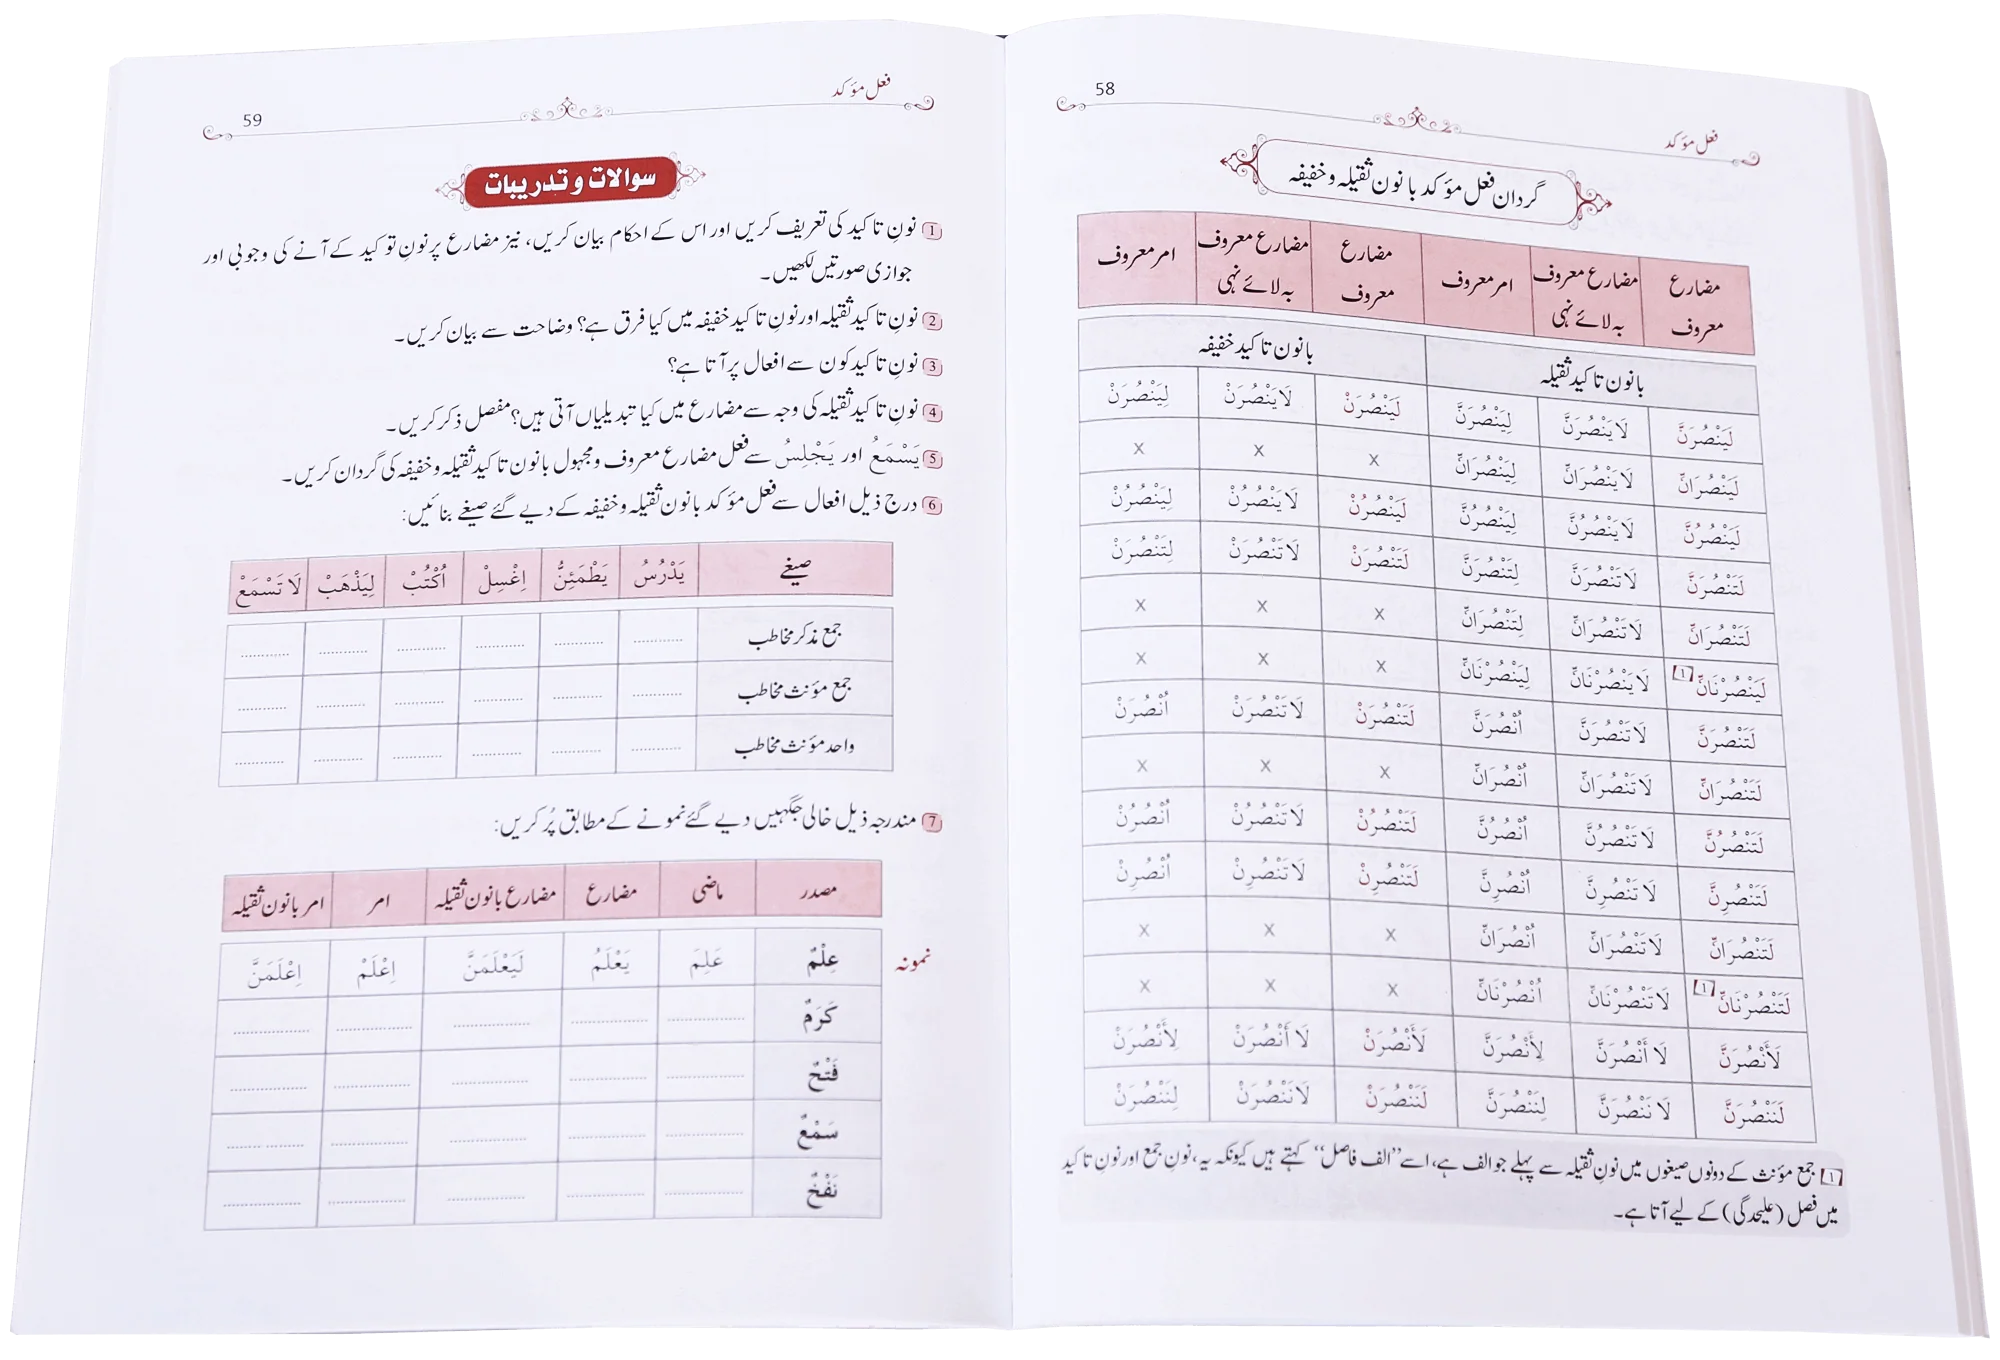 58
فعل مؤکد
گردان فعل مؤکد بانون ثقیلہ و خفیفہ
مضارع معروف | مضارع معروف بہ لائے نہی | امر معروف | مضارع معروف | مضارع معروف بہ لائے نہی | امر معروف
بانون تاکید ثقیلہ | بانون تاکید خفیفہ
لَيَنْصُرَنَّ | لَا يَنْصُرَنَّ | لِيَنْصُرَنَّ | لَيَنْصُرَنْ | لَا يَنْصُرَنْ | لِيَنْصُرَنْ
لَيَنْصُرَانِّ | لَا يَنْصُرَانِّ | لِيَنْصُرَانِّ | x | x | x
لَيَنْصُرُنَّ | لَا يَنْصُرُنَّ | لِيَنْصُرُنَّ | لَيَنْصُرُنْ | لَا يَنْصُرُنْ | لِيَنْصُرُنْ
لَتَنْصُرَنَّ | لَا تَنْصُرَنَّ | لِتَنْصُرَنَّ | لَتَنْصُرَنْ | لَا تَنْصُرَنْ | لِتَنْصُرَنْ
لَتَنْصُرَانِّ | لَا تَنْصُرَانِّ | لِتَنْصُرَانِّ | x | x | x
لَيَنْصُرْنَانِّ [١] | لَا يَنْصُرْنَانِّ | لِيَنْصُرْنَانِّ | x | x | x
لَتَنْصُرَنَّ | لَا تَنْصُرَنَّ | اُنْصُرَنَّ | لَتَنْصُرَنْ | لَا تَنْصُرَنْ | اُنْصُرَنْ
لَتَنْصُرَانِّ | لَا تَنْصُرَانِّ | اُنْصُرَانِّ | x | x | x
لَتَنْصُرُنَّ | لَا تَنْصُرُنَّ | اُنْصُرُنَّ | لَتَنْصُرُنْ | لَا تَنْصُرُنْ | اُنْصُرُنْ
لَتَنْصُرِنَّ | لَا تَنْصُرِنَّ | اُنْصُرِنَّ | لَتَنْصُرِنْ | لَا تَنْصُرِنْ | اُنْصُرِنْ
لَتَنْصُرَانِّ | لَا تَنْصُرَانِّ | اُنْصُرَانِّ | x | x | x
لَتَنْصُرْنَانِّ [١] | لَا تَنْصُرْنَانِّ | اُنْصُرْنَانِّ | x | x | x
لَأَنْصُرَنَّ | لَا أَنْصُرَنَّ | لِأَنْصُرَنَّ | لَأَنْصُرَنْ | لَا أَنْصُرَنْ | لِأَنْصُرَنْ
لَنَنْصُرَنَّ | لَا نَنْصُرَنَّ | لِنَنْصُرَنَّ | لَنَنْصُرَنْ | لَا نَنْصُرَنْ | لِنَنْصُرَنْ
[١] جمع مؤنث کے دونوں صیغوں میں نونِ ثقیلہ سے پہلے جو الف ہے، اسے ’’الف فاصل‘‘ کہتے ہیں کیونکہ یہ، نونِ جمع اور نونِ تاکید
میں فصل (علیحدگی) کے لیے آتا ہے۔
فعل مؤکد
59
سوالات و تدریبات
1 نونِ تاکید کی تعریف کریں اور اس کے احکام بیان کریں، نیز مضارع پر نونِ توکید کے آنے کی وجوبی اور
جوازی صورتیں لکھیں۔
2 نونِ تاکید ثقیلہ اور نونِ تاکید خفیفہ میں کیا فرق ہے؟ وضاحت سے بیان کریں۔
3 نونِ تاکید کون سے افعال پر آتا ہے؟
4 نونِ تاکید ثقیلہ کی وجہ سے مضارع میں کیا تبدیلیاں آتی ہیں؟ مفصل ذکر کریں۔
5 يَسْمَعُ اور يَجْلِسُ سے فعل مضارع معروف و مجہول بانون تاکید ثقیلہ و خفیفہ کی گردان کریں۔
6 درج ذیل افعال سے فعل مؤکد بانون ثقیلہ و خفیفہ کے دیے گئے صیغے بنائیں:
صیغے | يَدْرُسُ | يَطْمَئِنُّ | اِغْسِلْ | اُكْتُبْ | لِيَذْهَبْ | لَا تَسْمَعْ
جمع مذکر مخاطب | ............ | ............ | ............ | ............ | ............ | ............
جمع مؤنث مخاطب | ............ | ............ | ............ | ............ | ............ | ............
واحد مؤنث مخاطب | ............ | ............ | ............ | ............ | ............ | ............
7 مندرجہ ذیل خالی جگہیں دیے گئے نمونے کے مطابق پُر کریں:
مصدر | ماضی | مضارع | مضارع بانون ثقیلہ | امر | امر بانون ثقیلہ
نمونہ عِلْمٌ | عَلِمَ | يَعْلَمُ | لَيَعْلَمَنَّ | اِعْلَمْ | اِعْلَمَنَّ
كَرَمٌ | ............ | ............ | ............ | ............ | ............
فَتْحٌ | ............ | ............ | ............ | ............ | ............
سَمْعٌ | ............ | ............ | ............ | ............ | ............
نَفْخٌ | ............ | ............ | ............ | ............ | ............